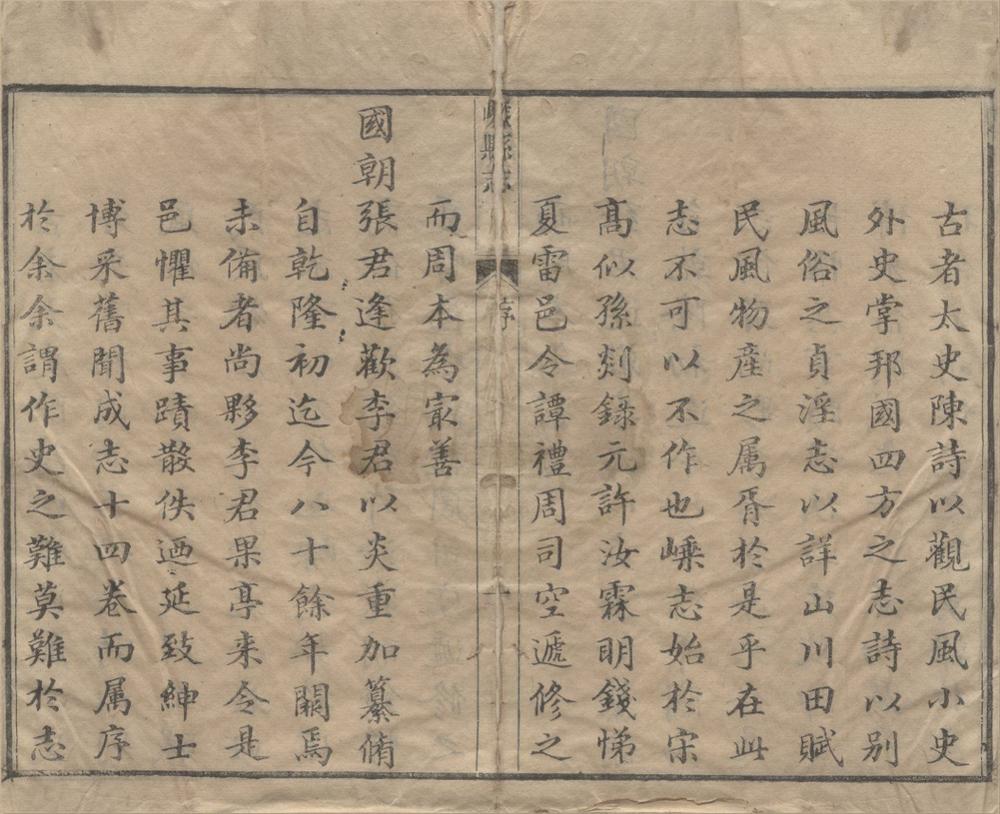 古者太史陳詩以觀民風小史
外史掌邦國四方之志詩以别
風俗之貞淫志以詳山川田賦
民風物產之属胥於是乎在此
志不可以不作也嵊志始於宋
髙似孫剡錄元許汝霖明錢悌
夏雷邑令譚禮周司空遞修之
嵊縣志
序
一
而周本為冣善
國朝張君逢歡李君以炎重加纂脩
自乾隆初迄今八十餘年闕焉
未備者尚夥李君果亭来令是
邑懼其事蹟散佚迺延致紳士
博采舊聞成志十四卷而属序
於余余謂作史之難莫難於志